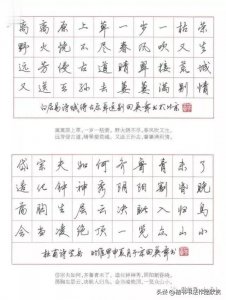 離離原上草一岁一枯荣
野火燒不尽春风吹又生
远芳侵古道晴翠接荒城
又送王孙去萋萋满别情
白居易诗赋得古原草送别田英章书於北京
离离原上草，一岁一枯荣。野火烧不尽，春风吹又生。
远芳侵古道，晴翠接荒城。又送王孙去，萋萋满别情。
岱宗夫如何齐鲁青未了
造化钟神秀阴阳割昏晓
荡胸生层云决眦入归鸟
会当凌绝顶一览众山小
杜甫诗望岳 时维甲申夏月于京田英章书
岱宗夫如何，齐鲁青未了。造化钟神秀，阴阳割昏晓。
荡胸生层云，决眦入归鸟。会当凌绝顶，一览众山小。